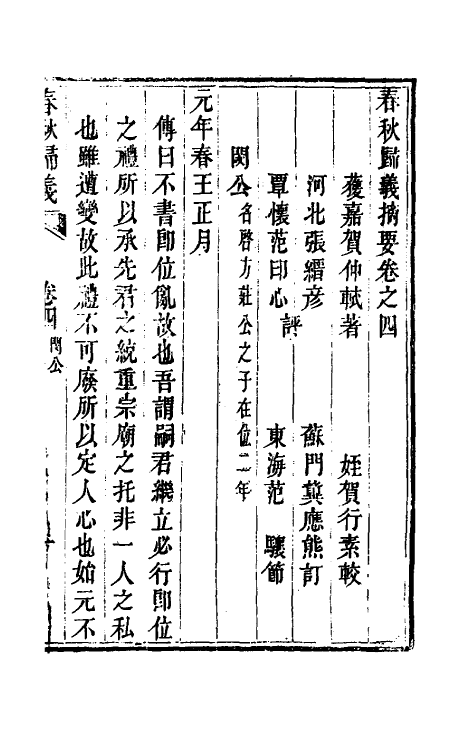 春秋歸義摘要卷之四
獲嘉賀仲軾著　姪賀行素較
河北張縉彥　蘇門冀應熊訂
覃懷范印心評　東海范　驤節
閔公名啓方莊公之子在位二年
元年春王正月
傳曰不書卽位亂故也吾謂嗣君繼立必行卽位
之禮所以承先君之統重宗廟之托非一人之私
也雖遭變故此禮不可廢所以定人心也始元不
春秋歸義　卷四　閔公